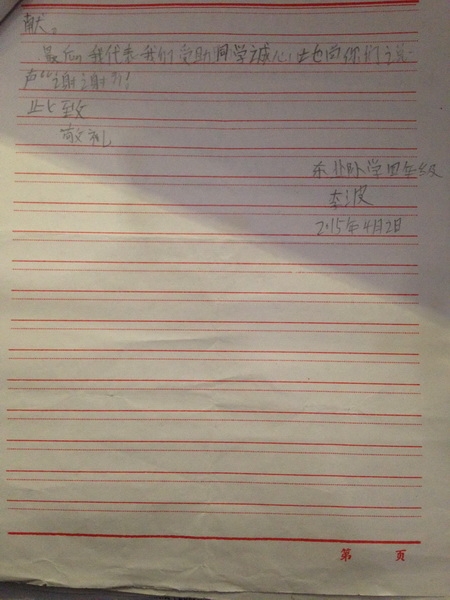 献。
最后,我代表我们受助同学诚心地向你们说
声“谢谢”!
此致
敬礼
学四年级
李波
2015年4月2日
第 页